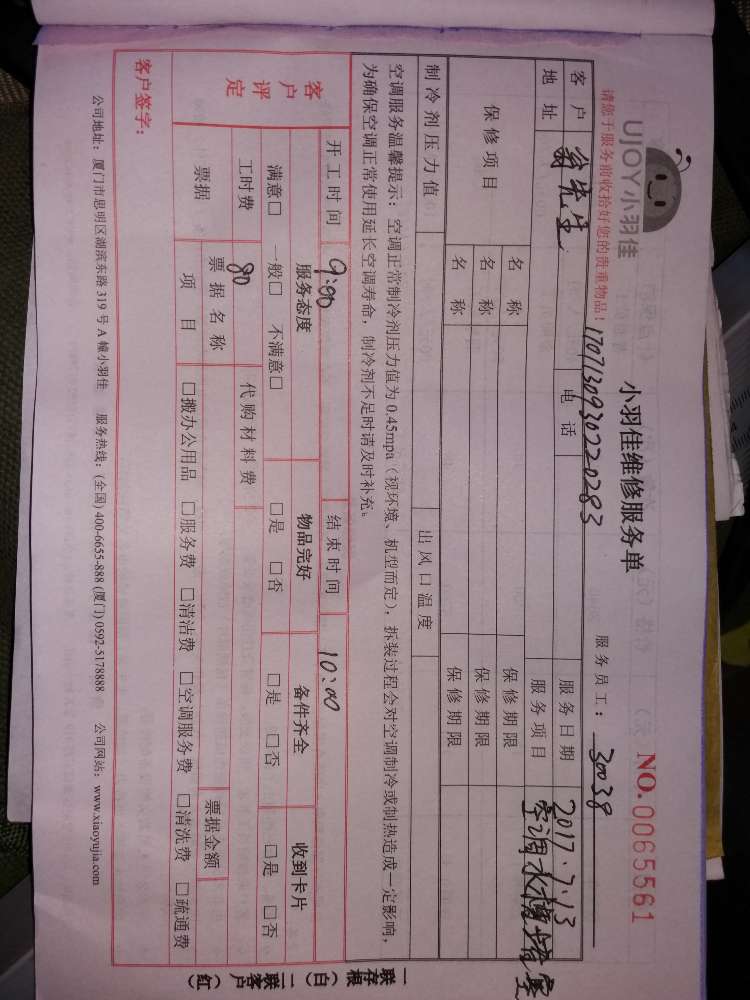 UJOY小羽佳
小羽佳维修服务单
NO. 0065561
请您于服务前收拾好您的贵重物品!
17071130930220283
服务员工: 30038
客户 翁先生 电话 服务日期 2017.7.13
地址 服务项目 空调水槽堵塞
保修项目 名称 保修期限
名称 保修期限
名称 保修期限
制冷剂压力值 出风口温度
空调服务温馨提示: 空调正常制冷剂压力值为 0.45mpa (视环境、机型而定), 拆装过程会对空调制冷或制热造成一定影响,
为确保空调正常使用延长空调寿命, 制冷剂不足时请及时补充。
开工时间 9:00 结束时间 10:00
客户评定 服务态度 物品完好 备件齐全 收到卡片
满意□ 一般□ 不满意□ □是 □否 □是 □否 □是 □否
工时费 80 代购材料费
票据 票据名称 票据金额
项目 □搬办公用品 □服务费 □清洁费 □空调服务费 □清洗费 □疏通费
客户签字:
公司地址: 厦门市思明区湖滨东路 319 号 A 幢小羽佳 服务热线: (全国) 400-6655-888 (厦门) 0592-5178888 公司网站: www.xiaoyujia.com
一联存根(白) 二联客户(红)